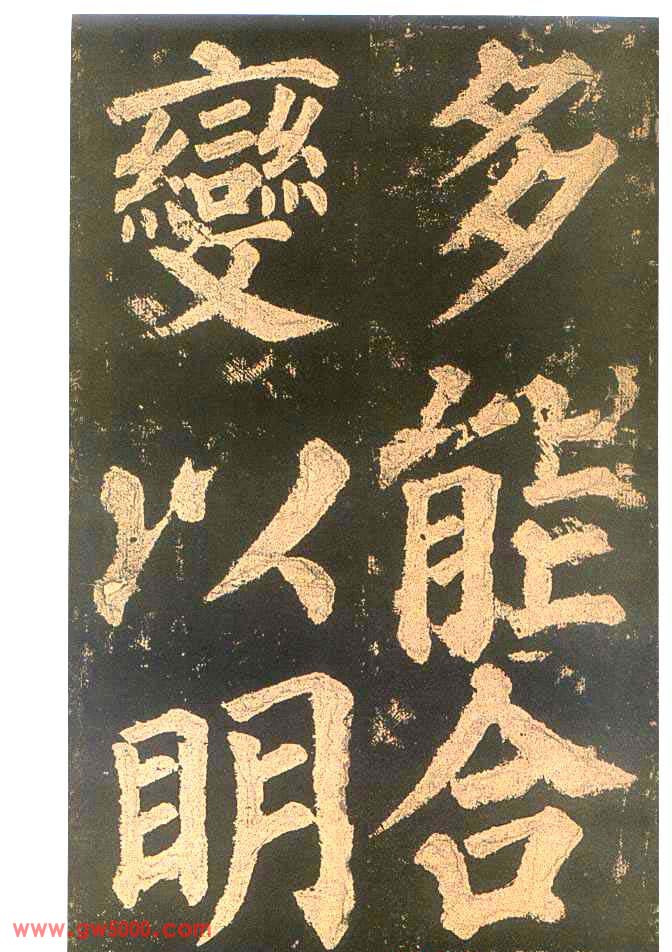 多能合
變以明
www.gw5000.com